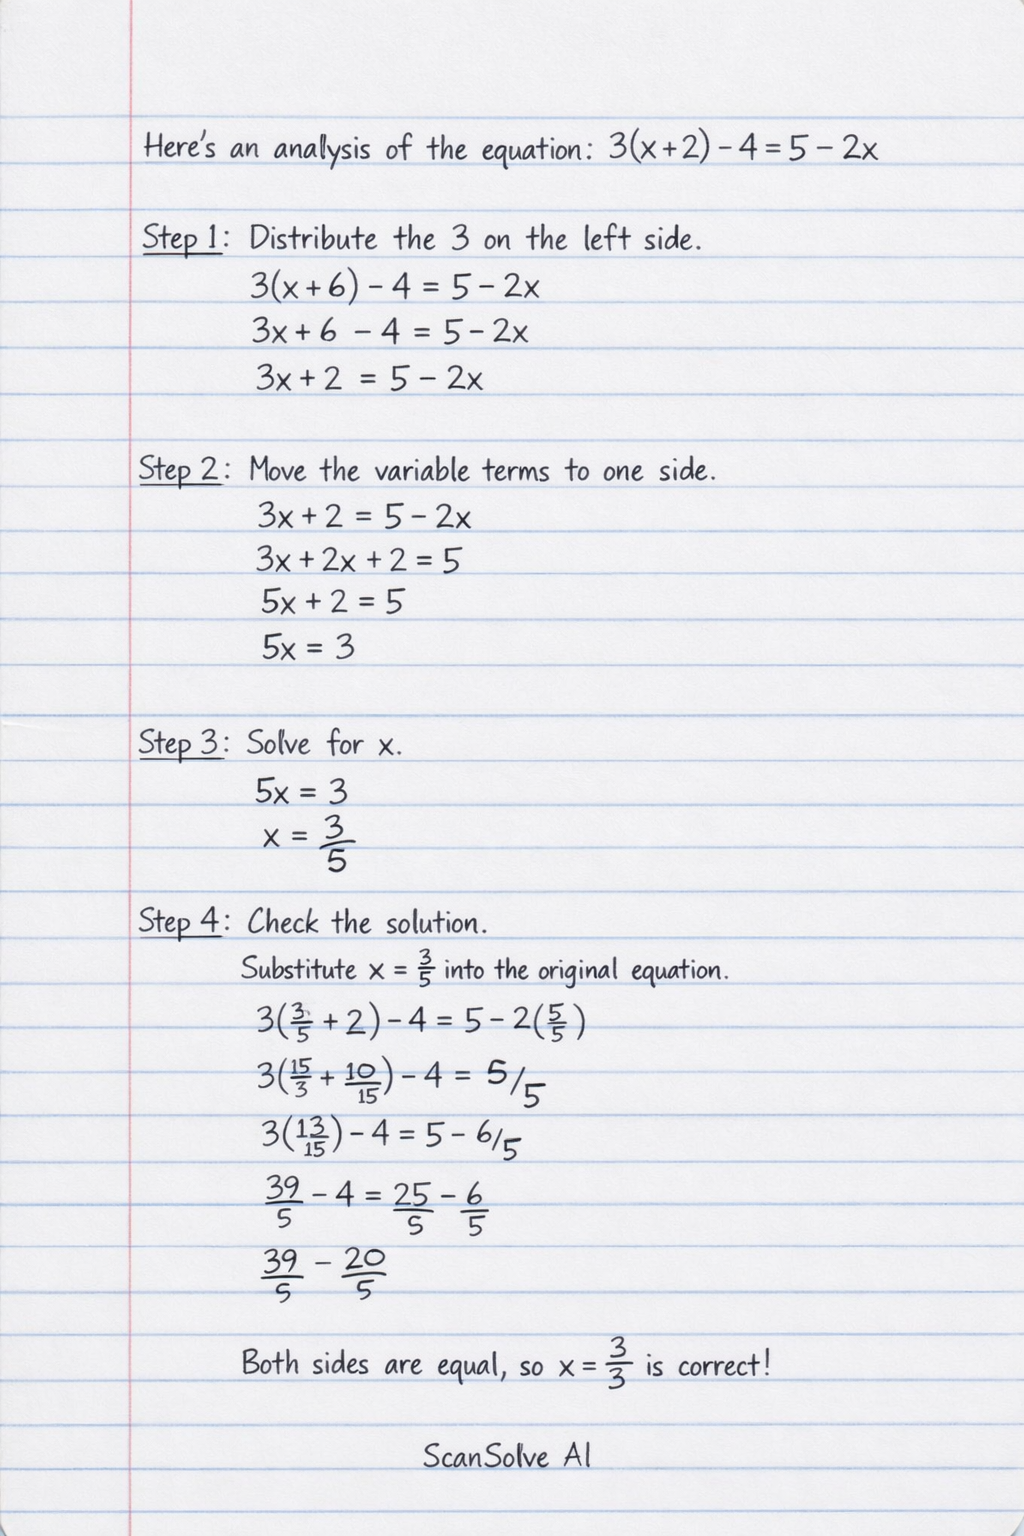 Here's an analysis of the equation: 3(x+2) - 4 = 5 - 2x
Step 1: Distribute the 3 on the left side.
3(x + 6) - 4 = 5 - 2x
3x + 6 - 4 = 5 - 2x
3x + 2 = 5 - 2x
Step 2: Move the variable terms to one side.
3x + 2 = 5 - 2x
3x + 2x + 2 = 5
5x + 2 = 5
5x = 3
Step 3: Solve for x.
5x = 3
x = 3/5
Step 4: Check the solution.
Substitute x = 3/5 into the original equation.
3(3/5 + 2) - 4 = 5 - 2(5/5)
3(15/3 + 10/15) - 4 = 5/5
3(13/15) - 4 = 5 - 6/5
39/5 - 4 = 25/5 - 6/5
39/5 - 20/5
Both sides are equal, so x = 3/3 is correct!
ScanSolve AI